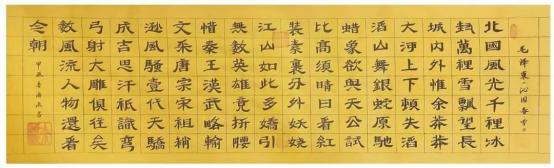 毛澤東沁園春雪
北國風光千裡冰
封萬裡雪飄望長
城內外惟余莽莽
大河上下頓失滔
滔山舞銀蛇原馳
蠟象欲與天公試
比高須晴日看紅
裝素裹分外妖嬈
江山如此多嬌引
無數英雄竟折腰
惜秦皇漢武略輸
文采唐宗宋祖稍
遜風騷壹代天驕
成吉思汗祇識彎
弓射大雕俱往矣
數風流人物還看
今朝
甲辰春